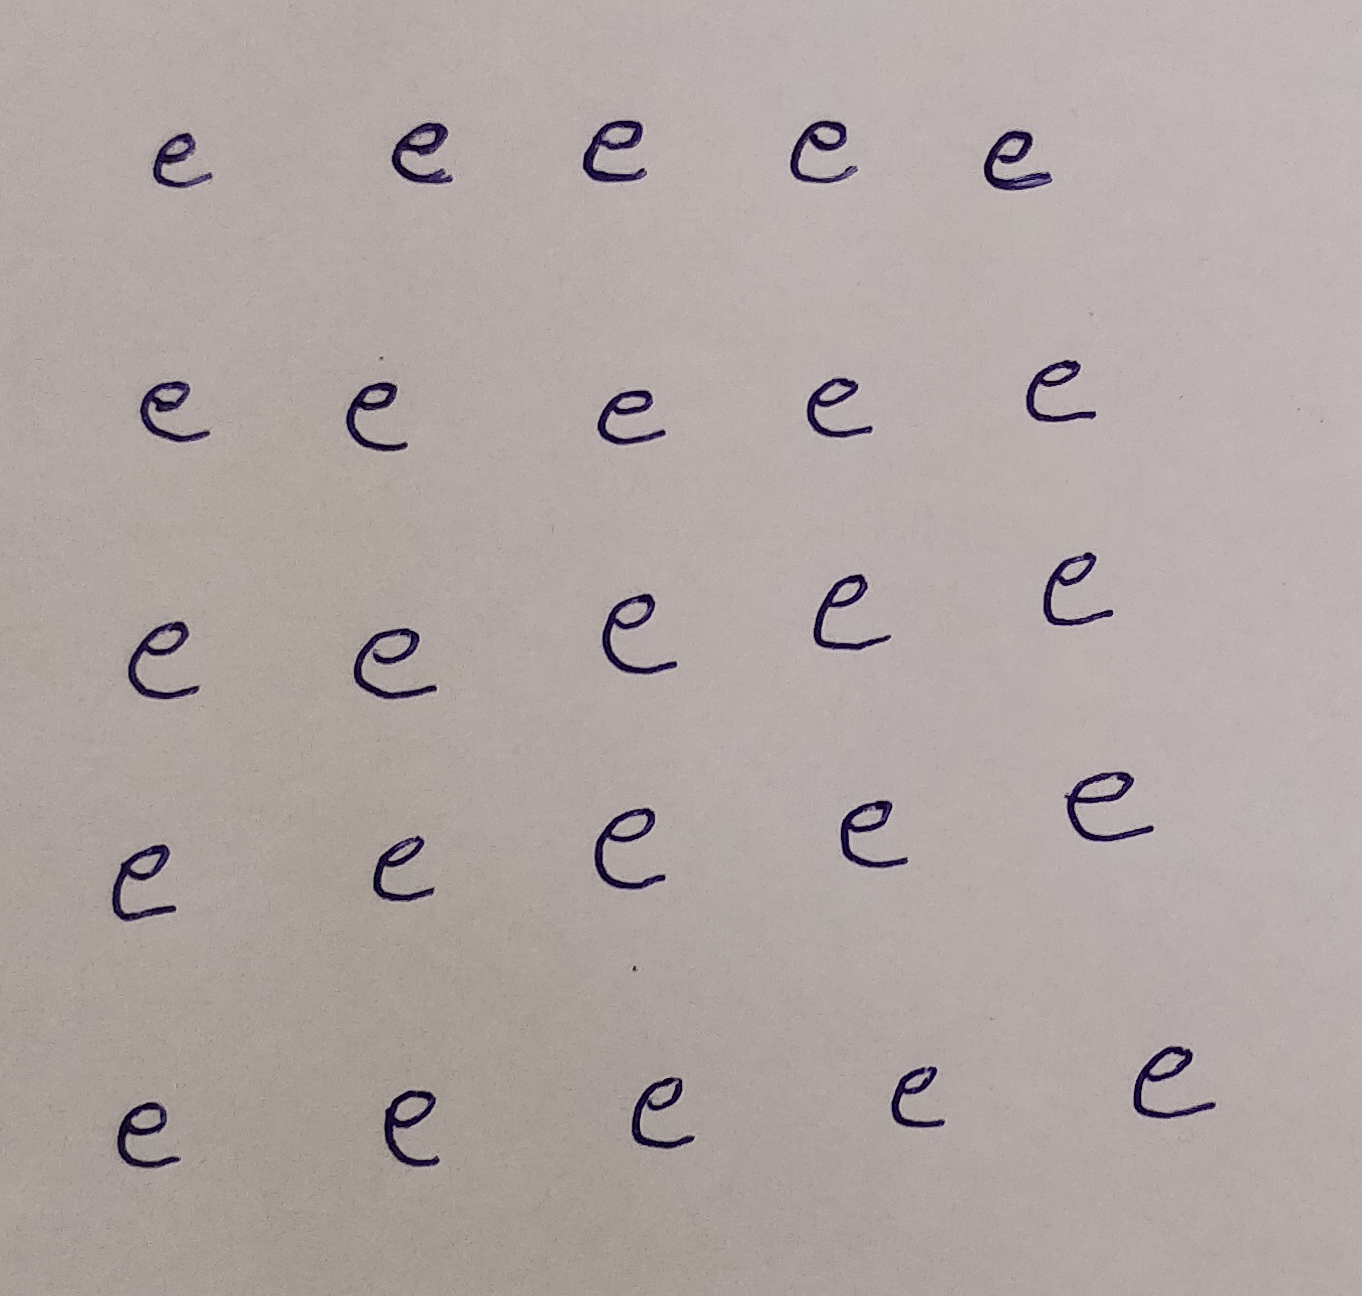 e e e e e
e e e e e
e e e e e
e e e e e
e e e e e